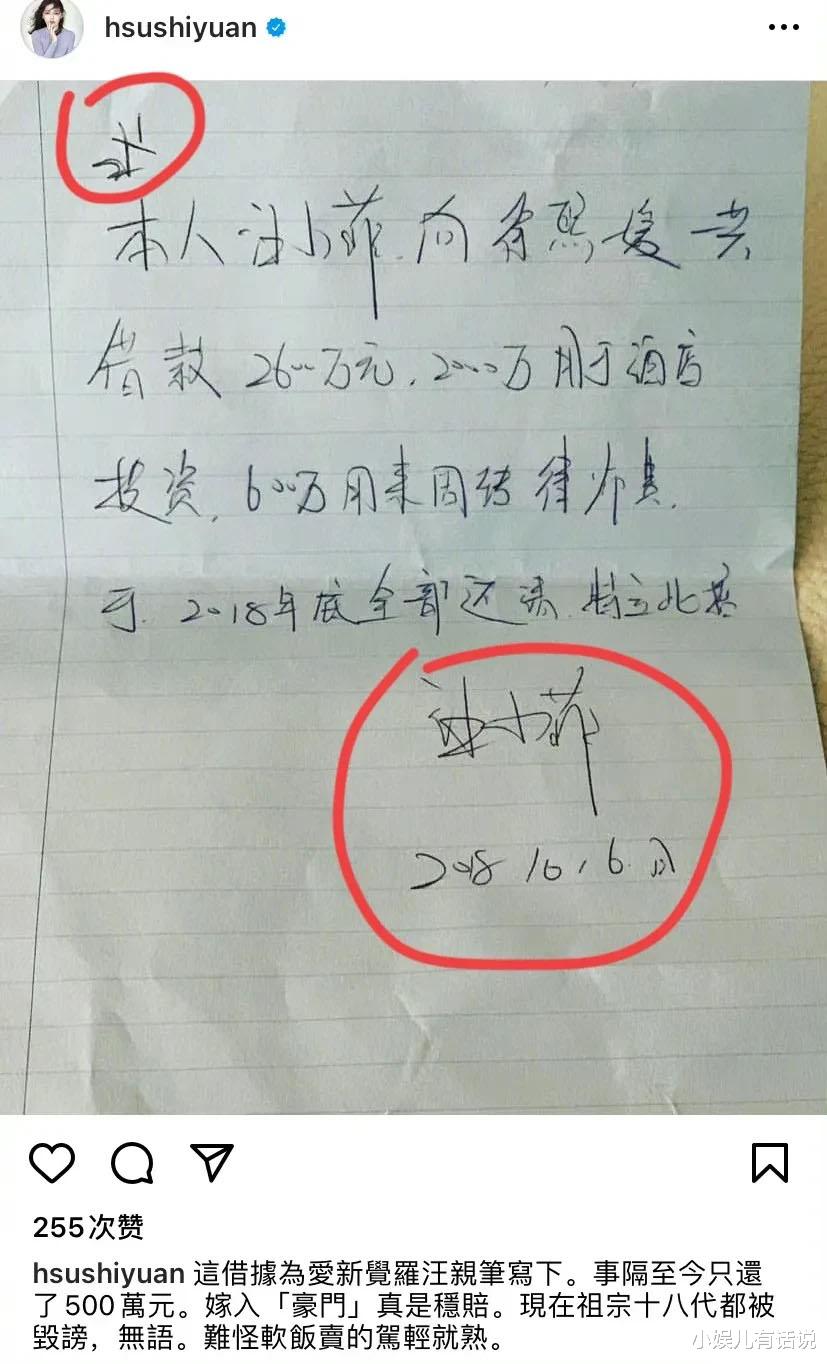 hsushiyuan
本人汪小菲.向徐熙媛共
借款2600万元.2000万用于酒店
投资,600万用来周转律师费.
于.2018年底全部还清.特立此据
汪小菲
2018 10, 6.
255次赞
hsushiyuan 這借據為愛新覺羅汪親筆寫下。事隔至今只還
了500萬元。嫁入「豪門」真是穩賠。現在祖宗十八代都被
毀謗，無語。難怪軟飯賣的駕輕就熟。
小娱儿有话说